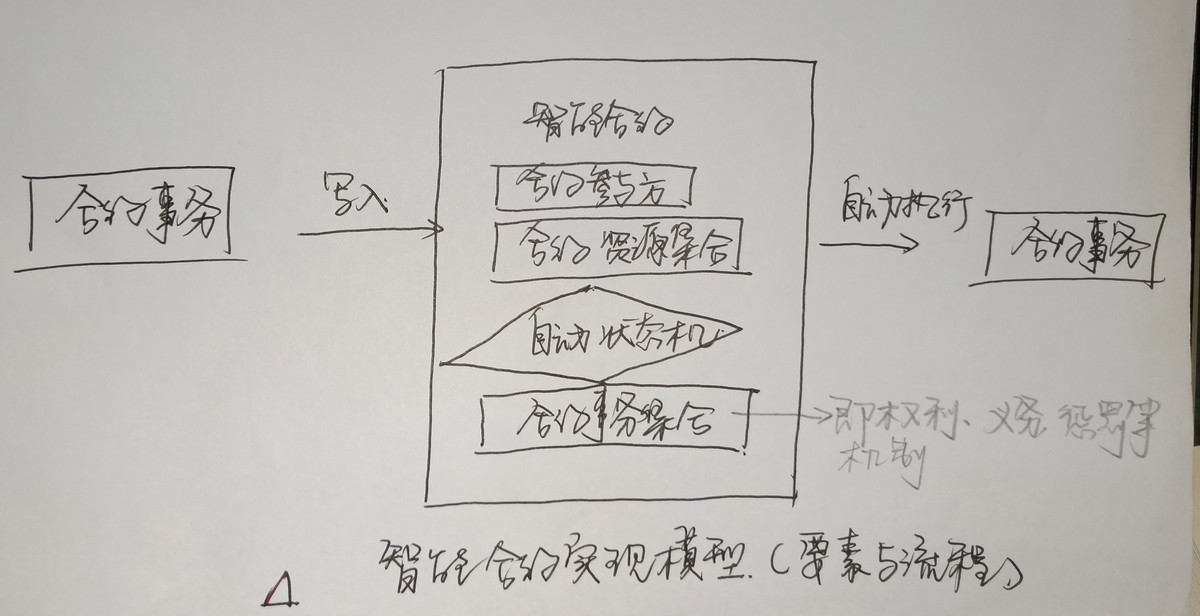 智能合约
合约事务
写入
合约参与方
合约资源集合
自动执行
合约事务
自动状态机
合约事务集合
即权利、义务 惩罚等
机制
智能合约实现模型.(要素与流程)